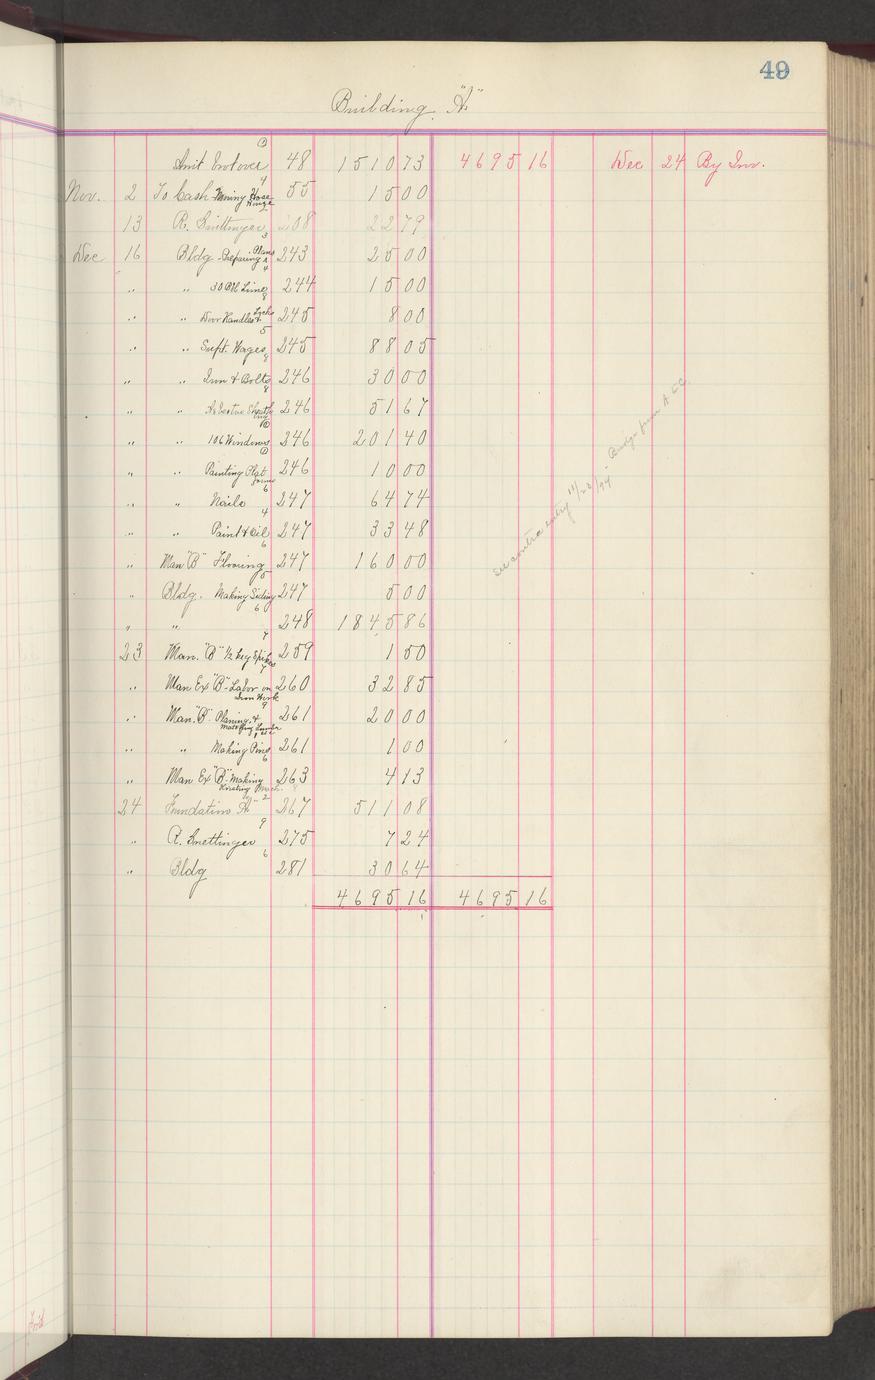 49
Building "A"
Amt brot over 48 1510 73 4695 16 Dec 24 By Inv.
Nov. 2 To Cash Moving Hose House 4 55 15 00
13 R. Snettinger 208 22 79
Dec 16 Bldg - Preparing Plans 3 243 25 00
" " 30 Bbl Lime 4 244 15 00
" " Door Handles & Locks 8 245 8 00
" " Supt. Wages 5 245 88 05
" " Iron & Bolts 8 246 30 00
" " Asbestos Sheathing 8 246 51 67
" " 106 Windows 10 246 201 40
" " Painting Plgt 246 10 00
" " Nails 6 247 64 74
" " Paint & Oil 4 247 33 48
" Man "B" Flooring 6 247 160 00
" Bldg. Making Siding 5 247 5 00
" " 6 248 1845 86
23 Man. "B" 1/2 keg Spikes 7 259 1 50
" Man Ex "B" - Labor on Iron Work 7 260 32 85
" Man. "B" Planing & Matching Lumber 9 261 20 00
" " Making Pins 261 1 00
" Man Ex "B" Making 6 263 4 13
24 Foundation "A" 2 267 511 08
" R. Snettinger 9 275 7 24
" Bldg 6 281 30 64
4695 16 4695 16
See contra entry 11/23/94 Bridge from A to C.